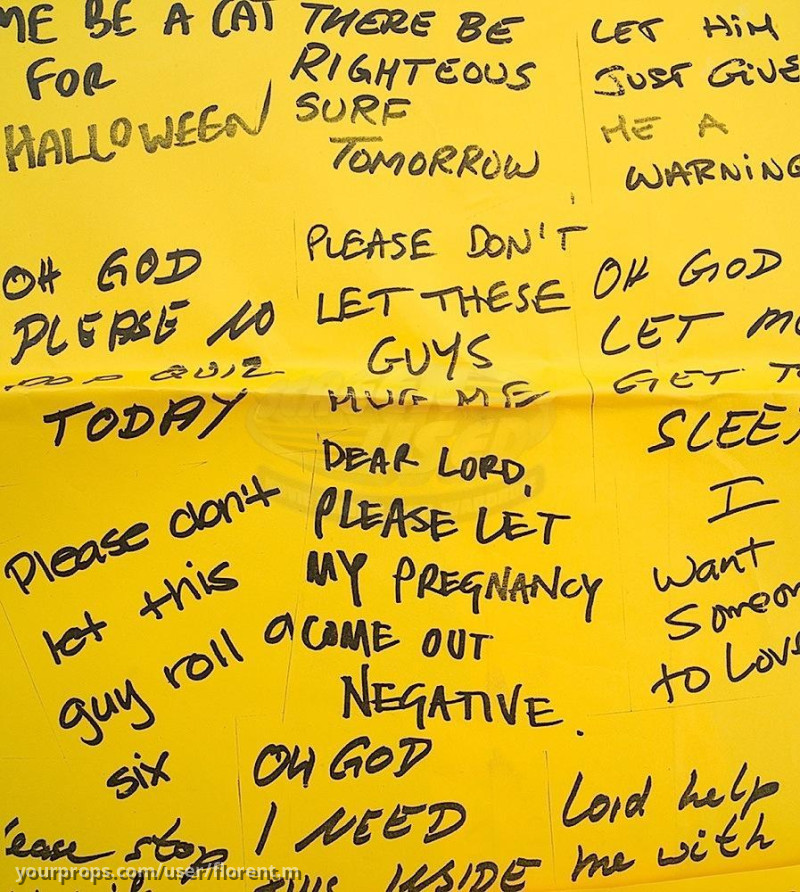 ME BE A CAT
FOR
HALLOWEEN
THERE BE
RIGHTEOUS
SURF
TOMORROW
LET HIM
JUST GIVE
ME A
WARNING
OH GOD
PLEASE NO
POP QUIZ
TODAY
PLEASE DON'T
LET THESE
GUYS
MUG ME
OH GOD
LET ME
GET TO
SLEEP
Please don't
let this
guy roll a
six
DEAR LORD,
PLEASE LET
MY PREGNANCY
COME OUT
NEGATIVE.
I
want
Someon
to Love
ease stop
OH GOD
I NEED
THIS INSIDE
Lord help
me with
yourprops.com/user/florent.m